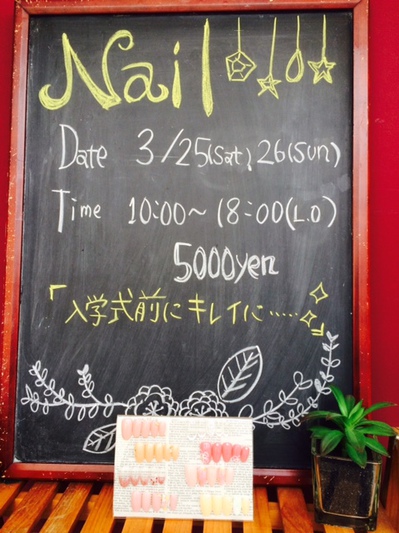 Nail
Date 3/25(Sat), 26(Sun)
Time 10:00〜18:00(L.O)
5000yen
「入学式前にキレイに……」